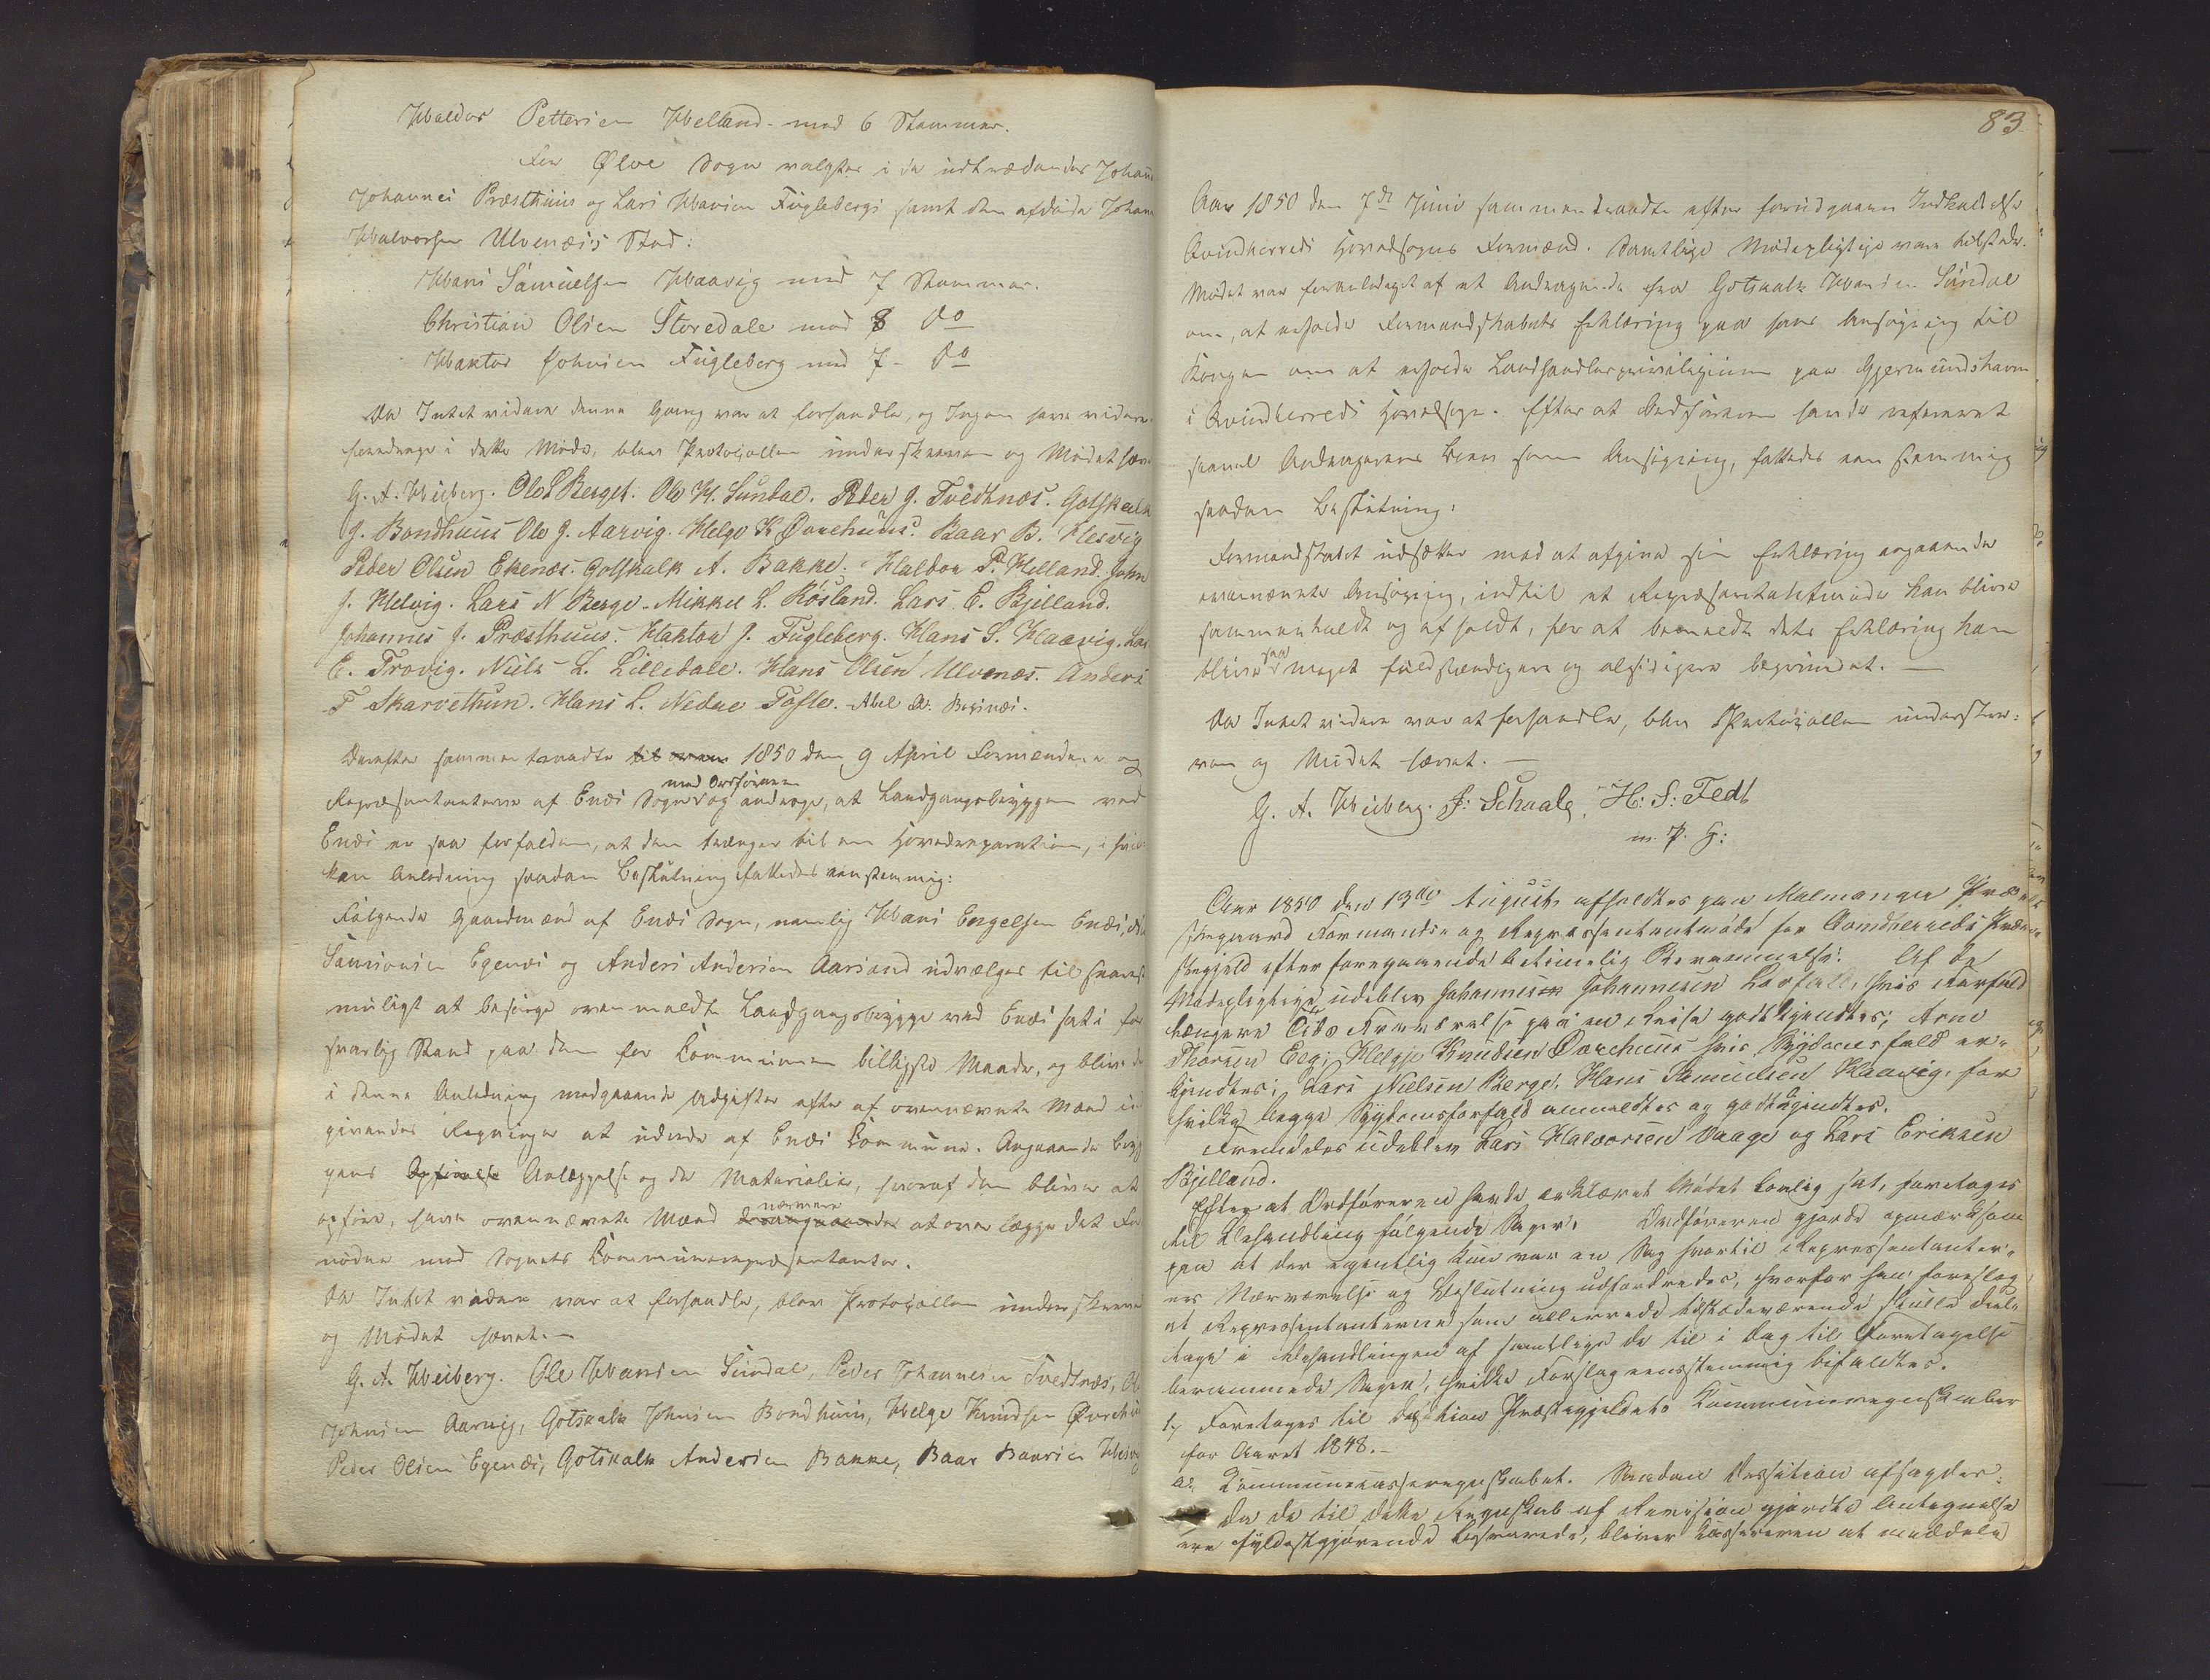 Haldor Pettersen Helland med 6 Stemmer.
For Ølve Sogn valgtes i de udtrædendes Johan
Johannes Præsthuus og Lars Hansen Fuglebergs samt den afdøde Johan
Halvorsen Ulvenæs's Sted:
Hans Samuelsen Haavig med 7 Stemmer.
Christian Olsen Storedale med 8 do
Haktor Johnsen Fugleberg med 7 - do
Da Intet videre denne Gang var at forhandle, og Ingen havde videre
foredrage i dette Møde, blev Protocollen underskreven og Mødet hæve
G. A. Heiberg. Ole L Berget. Ole H. Sundal. Peder J. Tvedtnæs. Gotskalk
J. Bondhuus Ole J. Aarvig. Helge K Øvrehuus. Baar B. Hesvig
Peder Olsen Ekenæs. Gotskalk A. Bakke. Haldor P. Helland. John
J. Helvig. Lars N Berge. Mikkel L. Røsland. Lars E. Bjelland.
Johannes J. Præsthuus. Haktor J. Fugleberg. Hans S. Haavig. Lar
E. Trovig. Niels L. Lilledale. Hans Olsen Ulvenæs. Anders
T Skarvethun. Hans L. Nedre Tofte. Abel
Derefter sammentraadte 1850 den 9 April Formændene og
med Ordføreren
Repræsentanterne af Enæs Sogn og androge, at Landgangsbryggen ved
Enæs er saa forfalden, at den trænger til en Hovedreparation, i hvil
ken Anledning saadan Beslutning fattedes eenstemmig:
Følgende Gaardmænd af Enæs Sogn, nemlig Hans Engelsen Enæs, Ole
Samsonsen Egenæs og Anders Andersen Aarsand udvælges til snarest
muligt at besørge ovenmeldte Landgangsbrygge ved Enæs sat i for
svarlig Stand paa den for Communen billigste Maade, og bliver de
i denne Anledning medgaaende Udgifter efter af ovennævnte Mænd in
givendes Regninger at udrede af Enæs Commune. Angaaende Bryg
gens Opførelse Anlæggelse og de Materialier, hvoraf den bliver at
nærmere
opføre, have ovennævnte Mænd derangaaende at overlægge det For
nødne med Sognets Communerepræsentanter.
Da Intet videre var at forhandle, blev Protocollen underskreven
og Mødet hævet.
G. A. Heiberg. Ole Hansen Sundal, Peder Johannesen Tvedtnæs, Ole
Johnsen Aarvig, Gotskalk Johnsen Bondhuus, Helge Knudsen Øvrehuus
Peder Olsen Egenæs, Gotskalk Andersen Bakke, Baar Baarsen Hesvig
83
Aar 1850 den 7de Juni sammentraadte efter forudgaaen Indkaldelse
Qvindherreds Hovedsogns Formænd. Samtlige Mødepligtige vare tilstede.
Mødet var foranlediget af et Andragende fra Gotskalk Hansen Sundal
om, at erholde Formandskabets Erklæring paa hans Ansøgning til
Kongen om at erholde Landhandlerprivilegium paa Gjermundshavn
i Qvindherreds Hovedsogn. Efter at Ordføreren havde refereret
saavel Andragerens Brev som Ansøgning, fattedes eenstemmig
saadan Beslutning:
Formandskabet udsætter med at afgive sin Erklæring angaaende
ovennævnte Ansøgning, indtil et Repræsentantmøde kan blive
sammenkaldt og afholdt, for at bemeldte dets Erklæring kan
blive saa meget fuldstændigere og alsidigere begrundet. —
Da Intet videre var at forhandle, blev Protocollen underskre-
ven og Mødet hævet. —
G. A. Heiberg. J: Schaale. H: S: Fedt
m. P. H:
Aar 1850 den 13de August afholdtes paa Malmanger Præ
stegaard Formands og Repræsentantmøde for Qvindherreds Præ
stegjeld efter foregaaende betimelig Berammelse. Af de
Mødepligtige udeblev Johannes Johannesen Løfald, hvis Forfald
længere Tids Fraværelse paa en Reise godtkjendtes; Arne
Thorsen Eeg; Helgje Knudsen Øvrehuus hvis Sygdomsforfald er-
kjendtes; Lars Nielsen Berge, Hans Samuelsen Haavig, for
hvilke begge Sygdomsforfald anmeldtes og godtkjendtes.
Fremdeles udeblev Lars Halvorsen Vaage og Lars Eriksen
Bjelland.
Efter at Ordføreren havde erklæret Mødet lovlig sat, foretoges
til Behandling følgende Sager: Ordføreren gjorde opmærksom
paa at der egentlig kun var en Sag hvortil Repræsentanter-
nes Nærværelse og Beslutning udfordredes, hvorfor han foreslog
at Repræsentanterne som allerede tilstedeværende skulle del-
tage i Behandlingen af samtlige de til i Dag til Foretagelse
berammede Sager, hvilket Forslag eenstemmig bifaldtes.
1, Foretoges til Decision Præstegjeldets Kommuneregnskaber
for Aaret 1848.—
a: Kommunecasseregnskabet. Saadan Decision afsagdes:
Da de til dette Regnskab af Revision gjordte Antegnelse
ere fyldestgjørende besvarede, bliver Kassereren at meddele